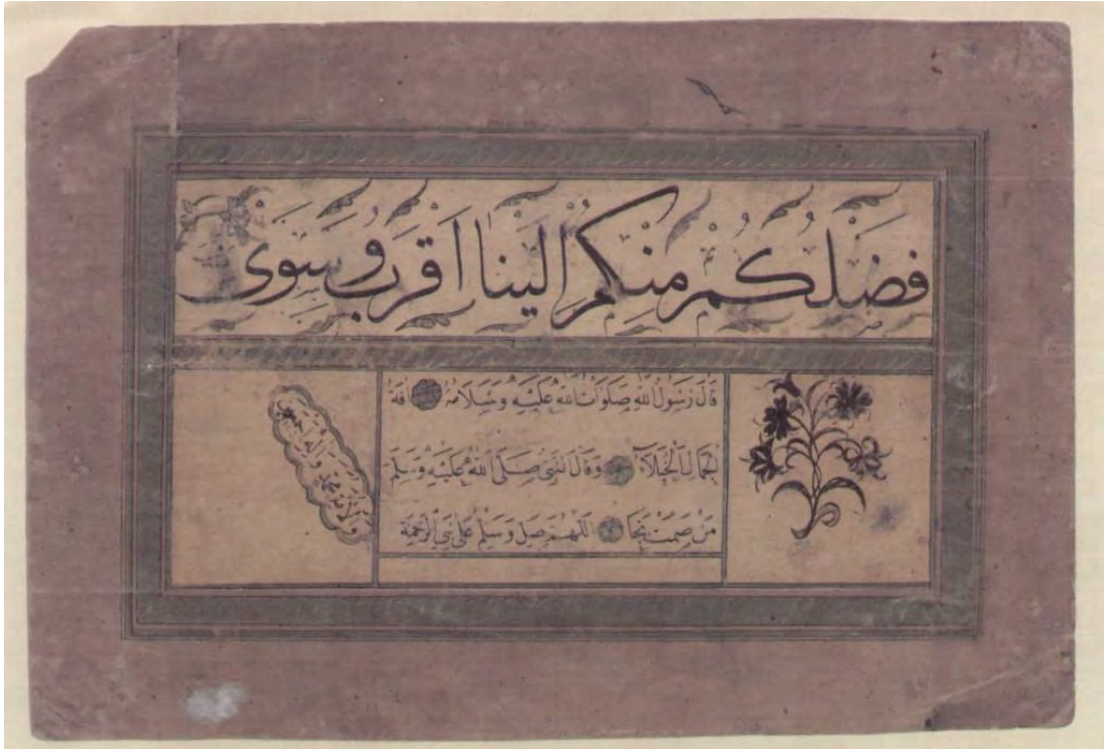 فَضْلُكُمْ مِنْكُمْ اِلَيْنَا اَقْرَبُ وَسِوَى
قَالَ رَسُولُ اللهِ صَلَوَاتُ اللهِ عَلَيْهِ وَسَلَامُهُ اٰفَةُ
الْجَمَالِ الْخُيَلَآءُ وَقَالَ النَّبِىُّ صَلَّى اللهُ عَلَيْهِ وَسَلَّمَ
مَنْ صَمَتَ نَجَا اَللّٰهُمَّ صَلِّ وَسَلِّمْ عَلٰى نَبِىِّ الرَّحْمَةِ